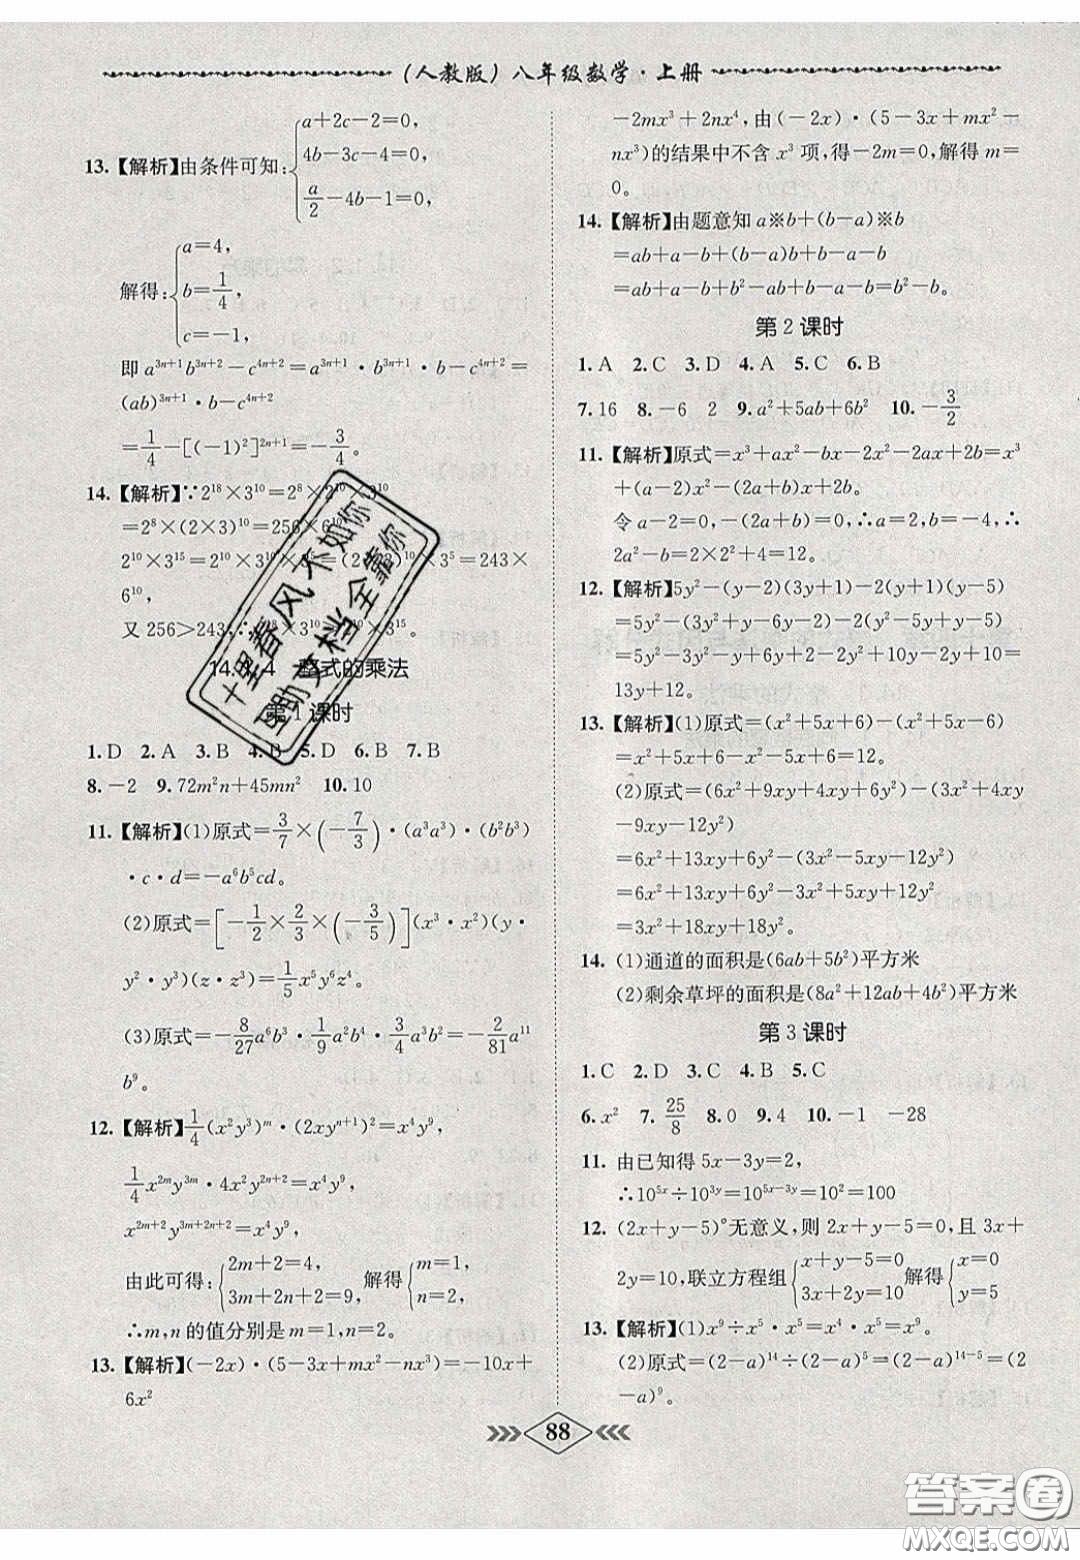 (人教版)八年级数学·上册
13.【解析】由条件可知:{a+2c-2=0,
4b-3c-4=0,
a/2-4b-1=0,
解得:{a=4,
b=1/4,
c=-1,
即 a^{3n+1}b^{3n+2}-c^{4n+2}=a^{3n+1}·b^{3n+1}·b-c^{4n+2}=
(ab)^{3n+1}·b-c^{4n+2}
=1/4-[(-1)²]^{2n+1}=-3/4。
14.【解析】∵2^{18}×3^{10}=2^8×2^{10}×3^{10}
=2^8×(2×3)^{10}=256×6^{10},
2^{10}×3^{15}=2^{10}×3^{10}×3^5=(2×3)^{10}×3^5=243×
6^{10},
又 256>243,∴2^{18}×3^{10}>2^{10}×3^{15}。
14.1.4 整式的乘法
第1课时
1.D 2.A 3.B 4.B 5.D 6.B 7.B
8.-2 9.72m²n+45mn² 10.10
11.【解析】(1)原式=3/7×(-7/3)·(a³a³)·(b²b³)
·c·d=-a⁶b⁵cd。
(2)原式=[-1/2×2/3×(-3/5)](x³·x²)(y·
y²·y³)(z·z³)=1/5x⁵y⁶z⁴。
(3)原式=-8/27a⁶b³·1/9a²b⁴·3/4a³b²=-2/81a^{11}
b⁹。
12.【解析】1/4(x²y³)^m·(2xy^{n+1})²=x⁴y⁹,
1/4x^{2m}y^{3m}·4x²y^{2n+2}=x⁴y⁹,
x^{2m+2}y^{3m+2n+2}=x⁴y⁹,
由此可得:{2m+2=4, 3m+2n+2=9, 解得{m=1, n=2,
∴m,n的值分别是m=1,n=2。
13.【解析】(-2x)·(5-3x+mx²-nx³)=-10x+
6x²
-2mx³+2nx⁴,由(-2x)·(5-3x+mx²-
nx³)的结果中不含x³项,得-2m=0,解得m=
0。
14.【解析】由题意知a※b+(b-a)※b
=ab+a-b+(b-a)b+b-a-b
=ab+a-b+b²-ab+b-a-b=b²-b。
第2课时
1.A 2.C 3.D 4.A 5.C 6.B
7.16 8.-6 2 9.a²+5ab+6b² 10.-3/2
11.【解析】原式=x³+ax²-bx-2x²-2ax+2b=x³
+(a-2)x²-(2a+b)x+2b。
令a-2=0,-(2a+b)=0。∴a=2,b=-4,∴
2a²-b=2×2²+4=12。
12.【解析】5y²-(y-2)(3y+1)-2(y+1)(y-5)
=5y²-(3y²-5y-2)-2(y²-4y-5)
=5y²-3y²+5y+2-2y²+8y+10=
13y+12。
13.【解析】(1)原式=(x²+5x+6)-(x²-5x-6)
=x²+5x+6-x²+5x+6=10x+12。
(2)原式=(6x²+9xy+4xy+6y²)-(3x²+4xy
-9xy-12y²)
=6x²+13xy+6y²-(3x²-5xy-12y²)
=6x²+13xy+6y²-3x²+5xy+12y²
=3x²+18xy+18y²。
14.(1)通道的面积是(6ab+5b²)平方米
(2)剩余草坪的面积是(8a²+12ab+4b²)平方米
第3课时
1.C 2.D 3.C 4.B 5.C
6.x² 7.25/8 8.0 9.4 10.-1 -28
11.由已知得5x-3y=2,
∴10^{5x}÷10^{3y}=10^{5x-3y}=10²=100
12.(2x+y-5)°无意义,则2x+y-5=0,且3x+
2y=10,联立方程组{x+y-5=0 3x+2y=10 解得{x=0 y=5
13.【解析】(1)x⁹÷x⁵·x⁵=x⁴·x⁵=x⁹。
(2)原式=(2-a)^{14}÷(2-a)⁵=(2-a)^{14-5}=(2
-a)⁹。
88
十里春风不如你
互助文档全靠你
答案圈
MXQE.COM